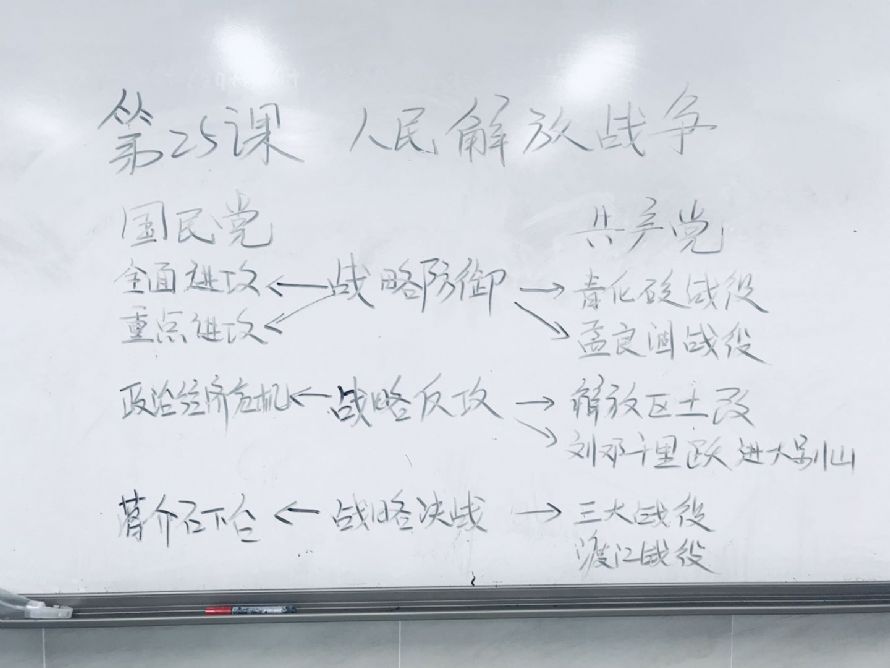 第25课 人民解放战争
国民党 共产党
全面进攻 ← 战略防御 → 青化砭战役
重点进攻 孟良崮战役
政治经济危机 ← 战略反攻 → 解放区土改
刘邓千里跃进大别山
蒋介石下台 ← 战略决战 → 三大战役
渡江战役